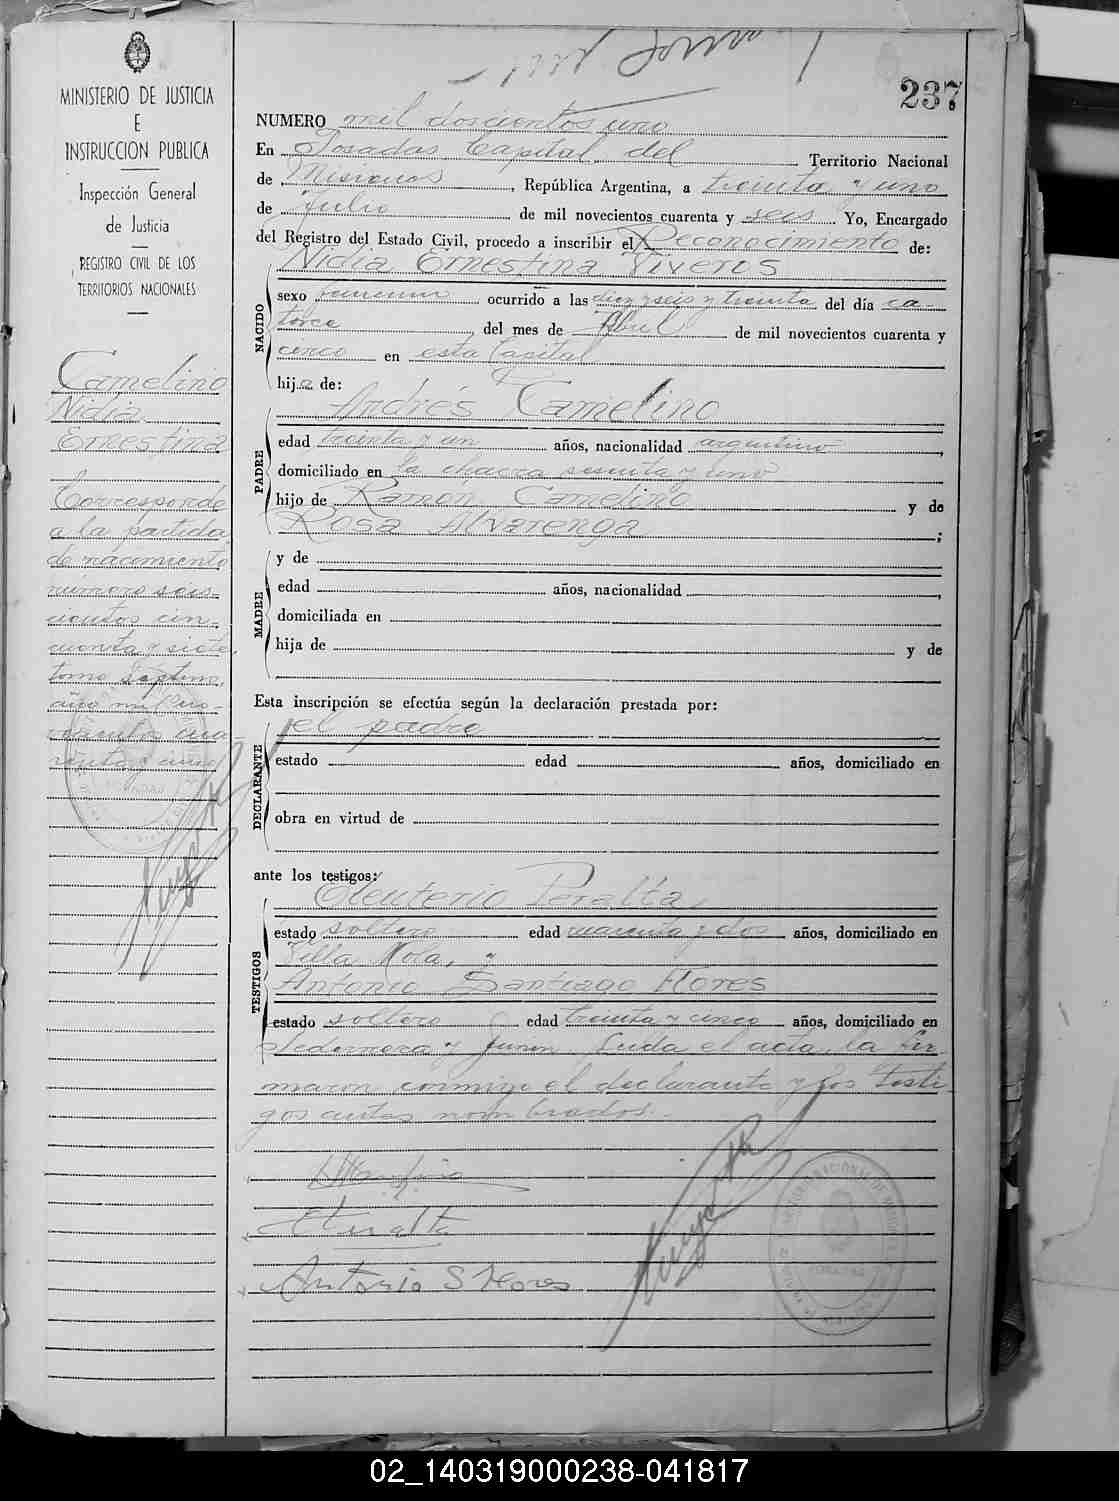 237
MINISTERIO DE JUSTICIA
E
INSTRUCCION PUBLICA
Inspección General
de Justicia
REGISTRO CIVIL DE LOS
TERRITORIOS NACIONALES
Camelino
Nidia
Ernestina
Corresponde
a la partida
de nacimiento
número seis-
cientos cin-
cuenta y siete,
tomo septimo,
año mil no-
vecientos cua-
renta y cinco
NUMERO mil doscientos uno
En Posadas Capital del Territorio Nacional
de Misiones, República Argentina, a treinta y uno
de Julio de mil novecientos cuarenta y seis Yo, Encargado
del Registro del Estado Civil, procedo a inscribir el Reconocimiento de:
Nidia Ernestina Viveros
NACIDO
sexo femenino ocurrido a las diez y seis y treinta del día ca-
torce, del mes de Abril de mil novecientos cuarenta y
cinco en esta Capital
hija de:
Andrés Camelino
PADRE
edad treinta y un años, nacionalidad argentino,
domiciliado en la chacra sesenta y uno
hijo de Ramón Camelino y de
Rosa Alvarenga;
MADRE
y de
edad años, nacionalidad,
domiciliada en
hija de y de
Esta inscripción se efectúa según la declaración prestada por:
el padre
DECLARANTE
estado edad años, domiciliado en
obra en virtud de
ante los testigos:
Eleuterio Peralta,
TESTIGOS
estado soltero edad cuarenta y dos años, domiciliado en
Villa Mola, y
Antonio Santiago Flores
estado soltero edad treinta y cinco años, domiciliado en
Pedernera y Junin Leida el acta, la fir-
maron conmigo el declarante y los testi-
gos antes nombrados.-
EPeralta
Antonio S Flores
02_140319000238-041817